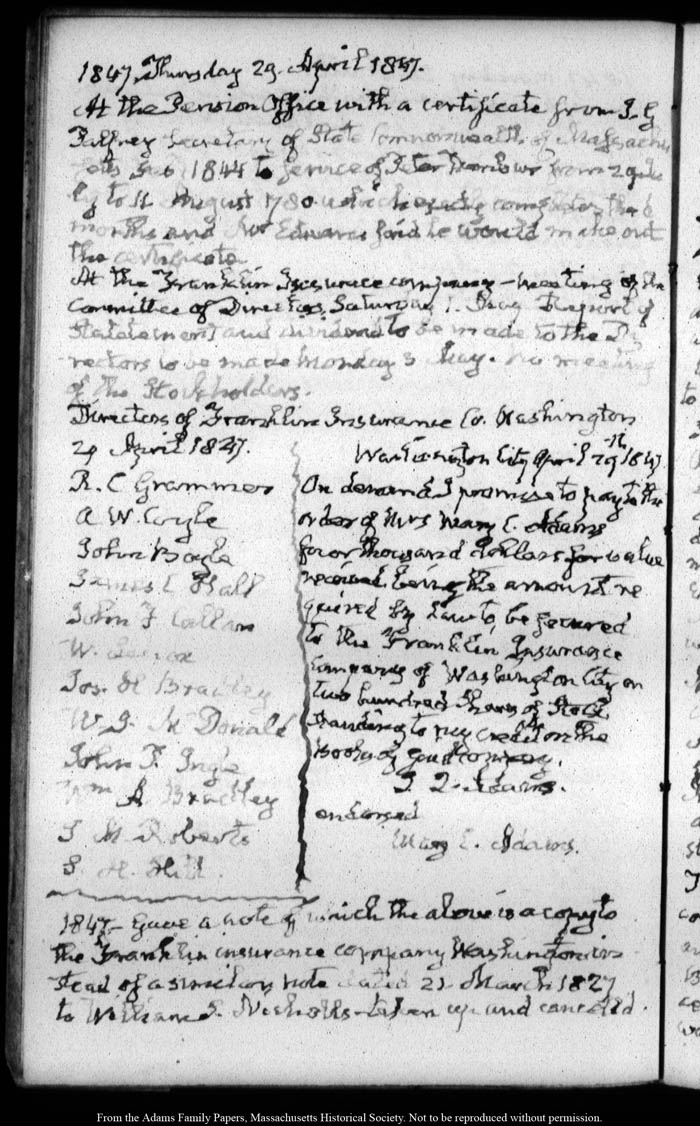 1847. Thursday 29. April 1847.
At the Pension Office with a certificate from J. G
Palfrey Secretary of State Commonwealth of Massachu
setts 1844 to service of Peter from 29 July
ly to 11 August 1780 which exactly completes the 6
months and Mr Edwards said he would make out
the certificate
At the Franklin Insurance company - meeting of the
Committee of Directors, Saturday 1. May Report of
Statement and dividend to be made to the Di
rectors to be made Monday 3 May. no meeting
of the Stockholders.
Directors of Franklin Insurance Co. Washington
29 April 1847.
R. C Grammer
A W. Coyle
John Boyle
James C Hall
John F Callan
W. Lenox
Jos. H Bradley
W. J. McDonald
John P. Ingle
Wm A. Bradley
J M. Roberts
S. H. Hill.
Washington City April 29th 1847
On demand I promise to pay to the
order of Mrs Mary C. Adams
four thousand dollars for value
received. being the amount re
quired by Law to be secured
to the Franklin Insurance
Company of Washington City on
two hundred Shares of Stock
standing to my credit on the
Books of said company.
J. Q. Adams.
endorsed
Mary C. Adams.
1847 - Gave a note of which the above is a copy to
the Franklin insurance company Washington in
stead of a similar note dated 21 March 1827
to William S. Nicholls - taken up and cancelled.
From the Adams Family Papers, Massachusetts Historical Society. Not to be reproduced without permission.